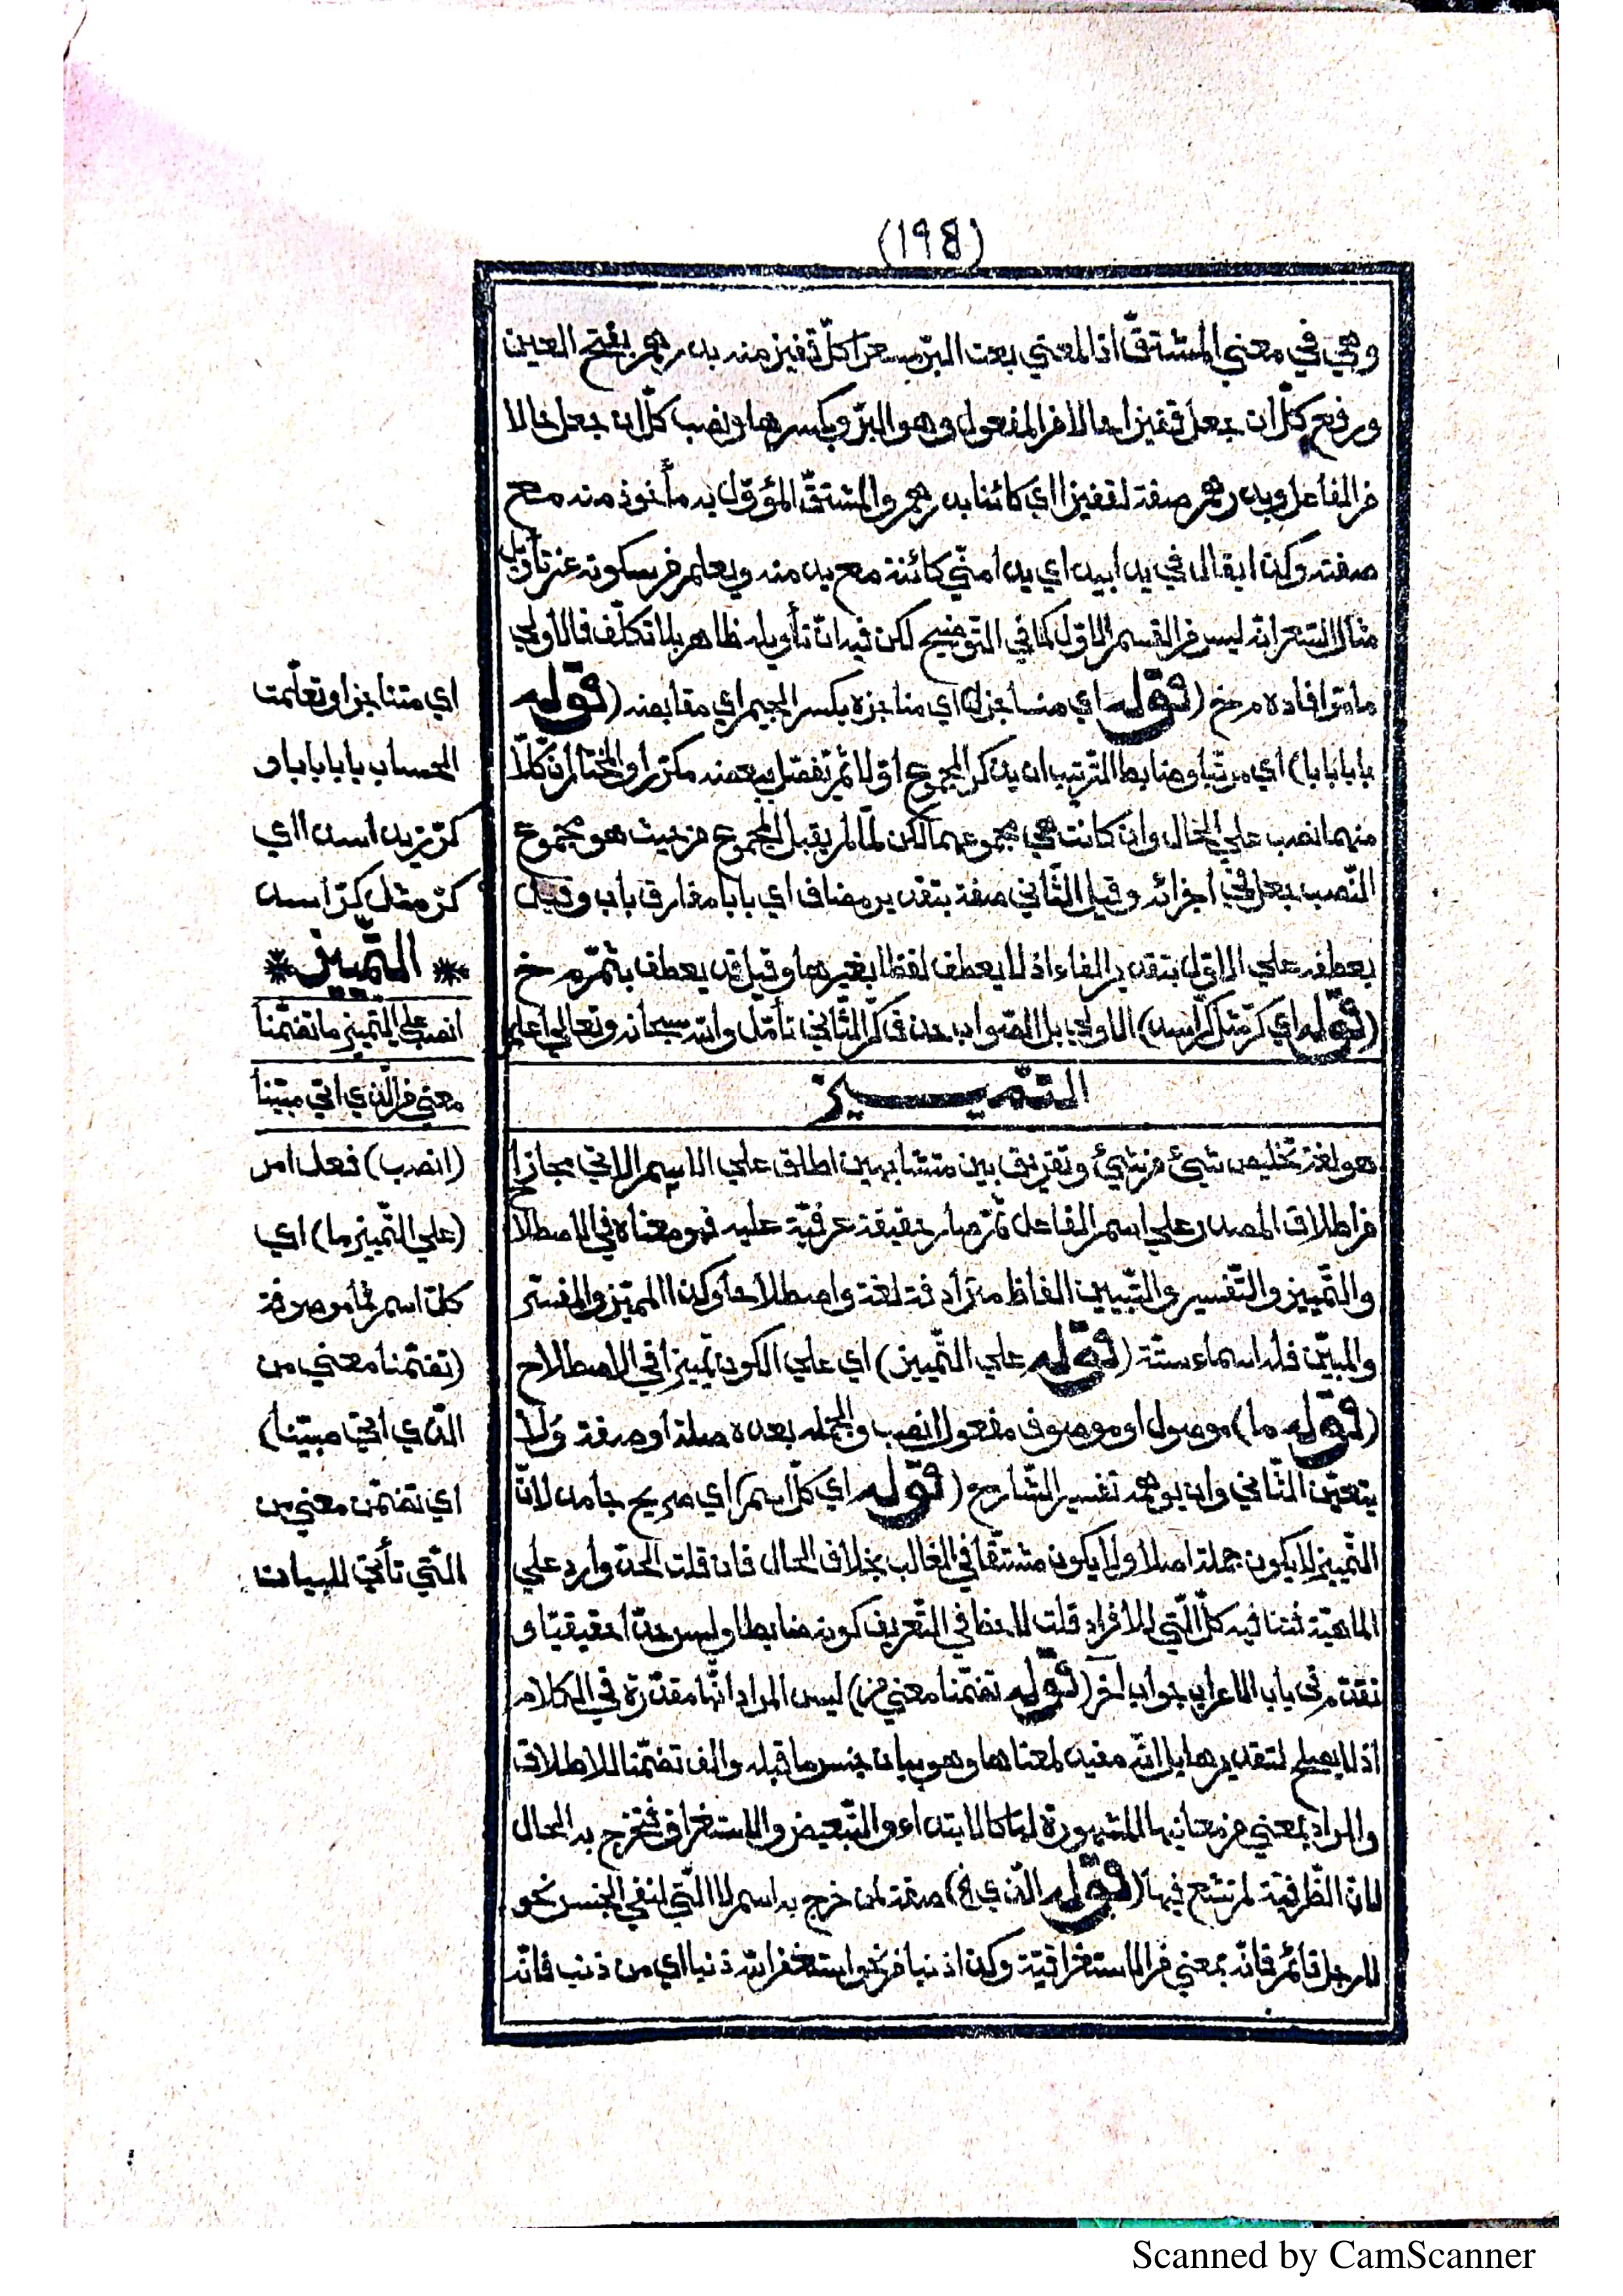 (١٩٤)
وهي في معني المشتقّ اذ المعني بعت البرّ مسعرا كلّ قفيز منه بدرهم بفتح العين
ورفع كلّ ان جعل قفيزا حالا من المفعول وهو البرّ وبكسرها ونصب كلّ ان جعل حالا
من الفاعل وبدرهم صفة لقفيزا اي كائنا بدرهم والمشتقّ المؤوّل به مأخوذ منه مع
صفته وكذا يقال في يدا بيد اي يدا منّي كائنة مع يد منه ويعلم من سكوته عن تأويل
مثال السّعر انّه ليس من القسم الاوّل كما في التّوضيح لكن فيه انّ تأويله ظاهر بلا تكلّف فالاولي
ما مرّ افاده م رخ (قوله اي مناجزا) اي مناجزه بكسر الجيم اي مقابضه (قوله
بابا بابا) اي مرتّبا وضابط التّرتيب ان يذكر المجموع اوّلا ثمّ تفصّل ببعضه مكرّرا والمختار انّ كلّا
منهما نصب علي الحال وان كانت هي مجموعهما لكن لمّا لم يقبل المجموع من حيث هو مجموع
النّصب جعل في اجزائه وقيل الثّاني صفة بتقدير مضاف اي بابا مفارق باب وقيل
بعطفه علي الاوّل بتقدير الفاء اذ لا يعطف لفظا بغيرها وقيل قد يعطف بثمّ م رخ
(قوله اي كرّ مثل كرّ اسد) الاولي بل الصّواب حذف كرّ الثّاني تأمّل والله سبحانه وتعالي اعلم
التّمييز
هو لغة تخليص شيئ من شيئ وتفريق بين متشابهين اطلق علي الاسم الاتي مجازا
من اطلاق المصدر علي اسم الفاعل ثمّ صار حقيقة عرفيّة عليه فهو معناه في الاصطلاح
والتّمييز والتّفسير والتّبيين الفاظ مترادفة لغة واصطلاحا وكذا المميّز والمفسّر
والمبيّن فله اسماء ستّة (قوله علي التّمييز) اي علي الكون تمييزا في الاصطلاح
(قوله ما) موصول او موصوف مفعول انصب والجمله بعده صلة او صفة ولا
يتعيّن الثّاني وان يوهمه تفسير الشّارح (قوله اي كلّ اسم) اي صريح جامد لانّ
التّمييز لا يكون جملة اصلا ولا يكون مشتقّا في الغالب بخلاف الحال فان قلت الحدّ وارد علي
الماهيّة فتنافيه كلّ الّتي للافراد قلت لاحظ في التّعريف كونه ضابطا وليس حدّا حقيقيّا و
تقدّم في باب الاعراب جواب آخر (قوله تضمّنا معني من) ليس المراد انّها مقدّرة في الكلام
اذ لا يصلح لتقديرها بل انّه مفيد لمعناها وهو بيان جنس ما قبله والف تضمّنا للاطلاق
والمراد بمعني من معانيها المشهورة لها كالابتداء والتّبعيض والاستغراق فتخرج به الحال
لانّ الظّرفيّة لم تشع فيها (قوله الّذي الخ) صفة لمن خرج به اسم لا الّتي لنفي الجنس نحو
لا رجل قائم فانّه بمعني من الاستغراقيّة وكذا ذنبا من نحو استغفر الله ذنبا اي من ذنب فانّه
اي متناجزا وتعلّمت
الحساب بابا بابا و
كرّ زيد اسدا اي
كرّ مثل كرّ اسد
* التّمييز *
انصب علي التّمييز ما تضمّنا
معني من الّذي اتي مبيّنا
(انصب) فعل امر
(علي التّمييز ما) اي
كلّ اسم فما موصوفة
(تضمّنا معني من
الّذي اتي مبيّنا)
اي تضمّن معني من
الّتي تأتي للبيان
Scanned by CamScanner